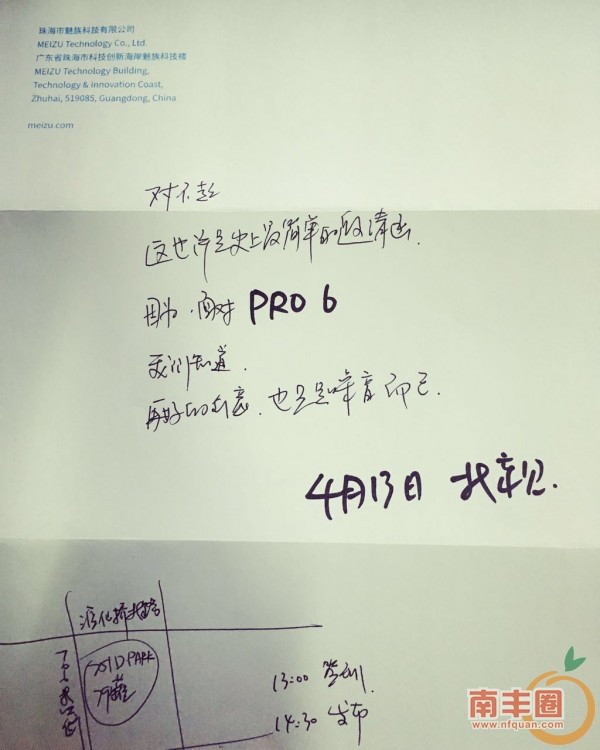 珠海市魅族科技有限公司
MEIZU Technology Co., Ltd.
广东省珠海市科技创新海岸魅族科技楼
MEIZU Technology Building,
Technology & Innovation Coast,
Zhuhai, 519085, Guangdong, China
meizu.com
对不起
这也许是史上最简单的邀请函.
因为,面对 PRO 6
我们知道.
再好的 ,也只是噪音而已.
4月13日 北京见.
酒仙桥北路
751 D PARK
79罐
13:00 签到
14:30 发布
南丰圈
www.nfquan.com